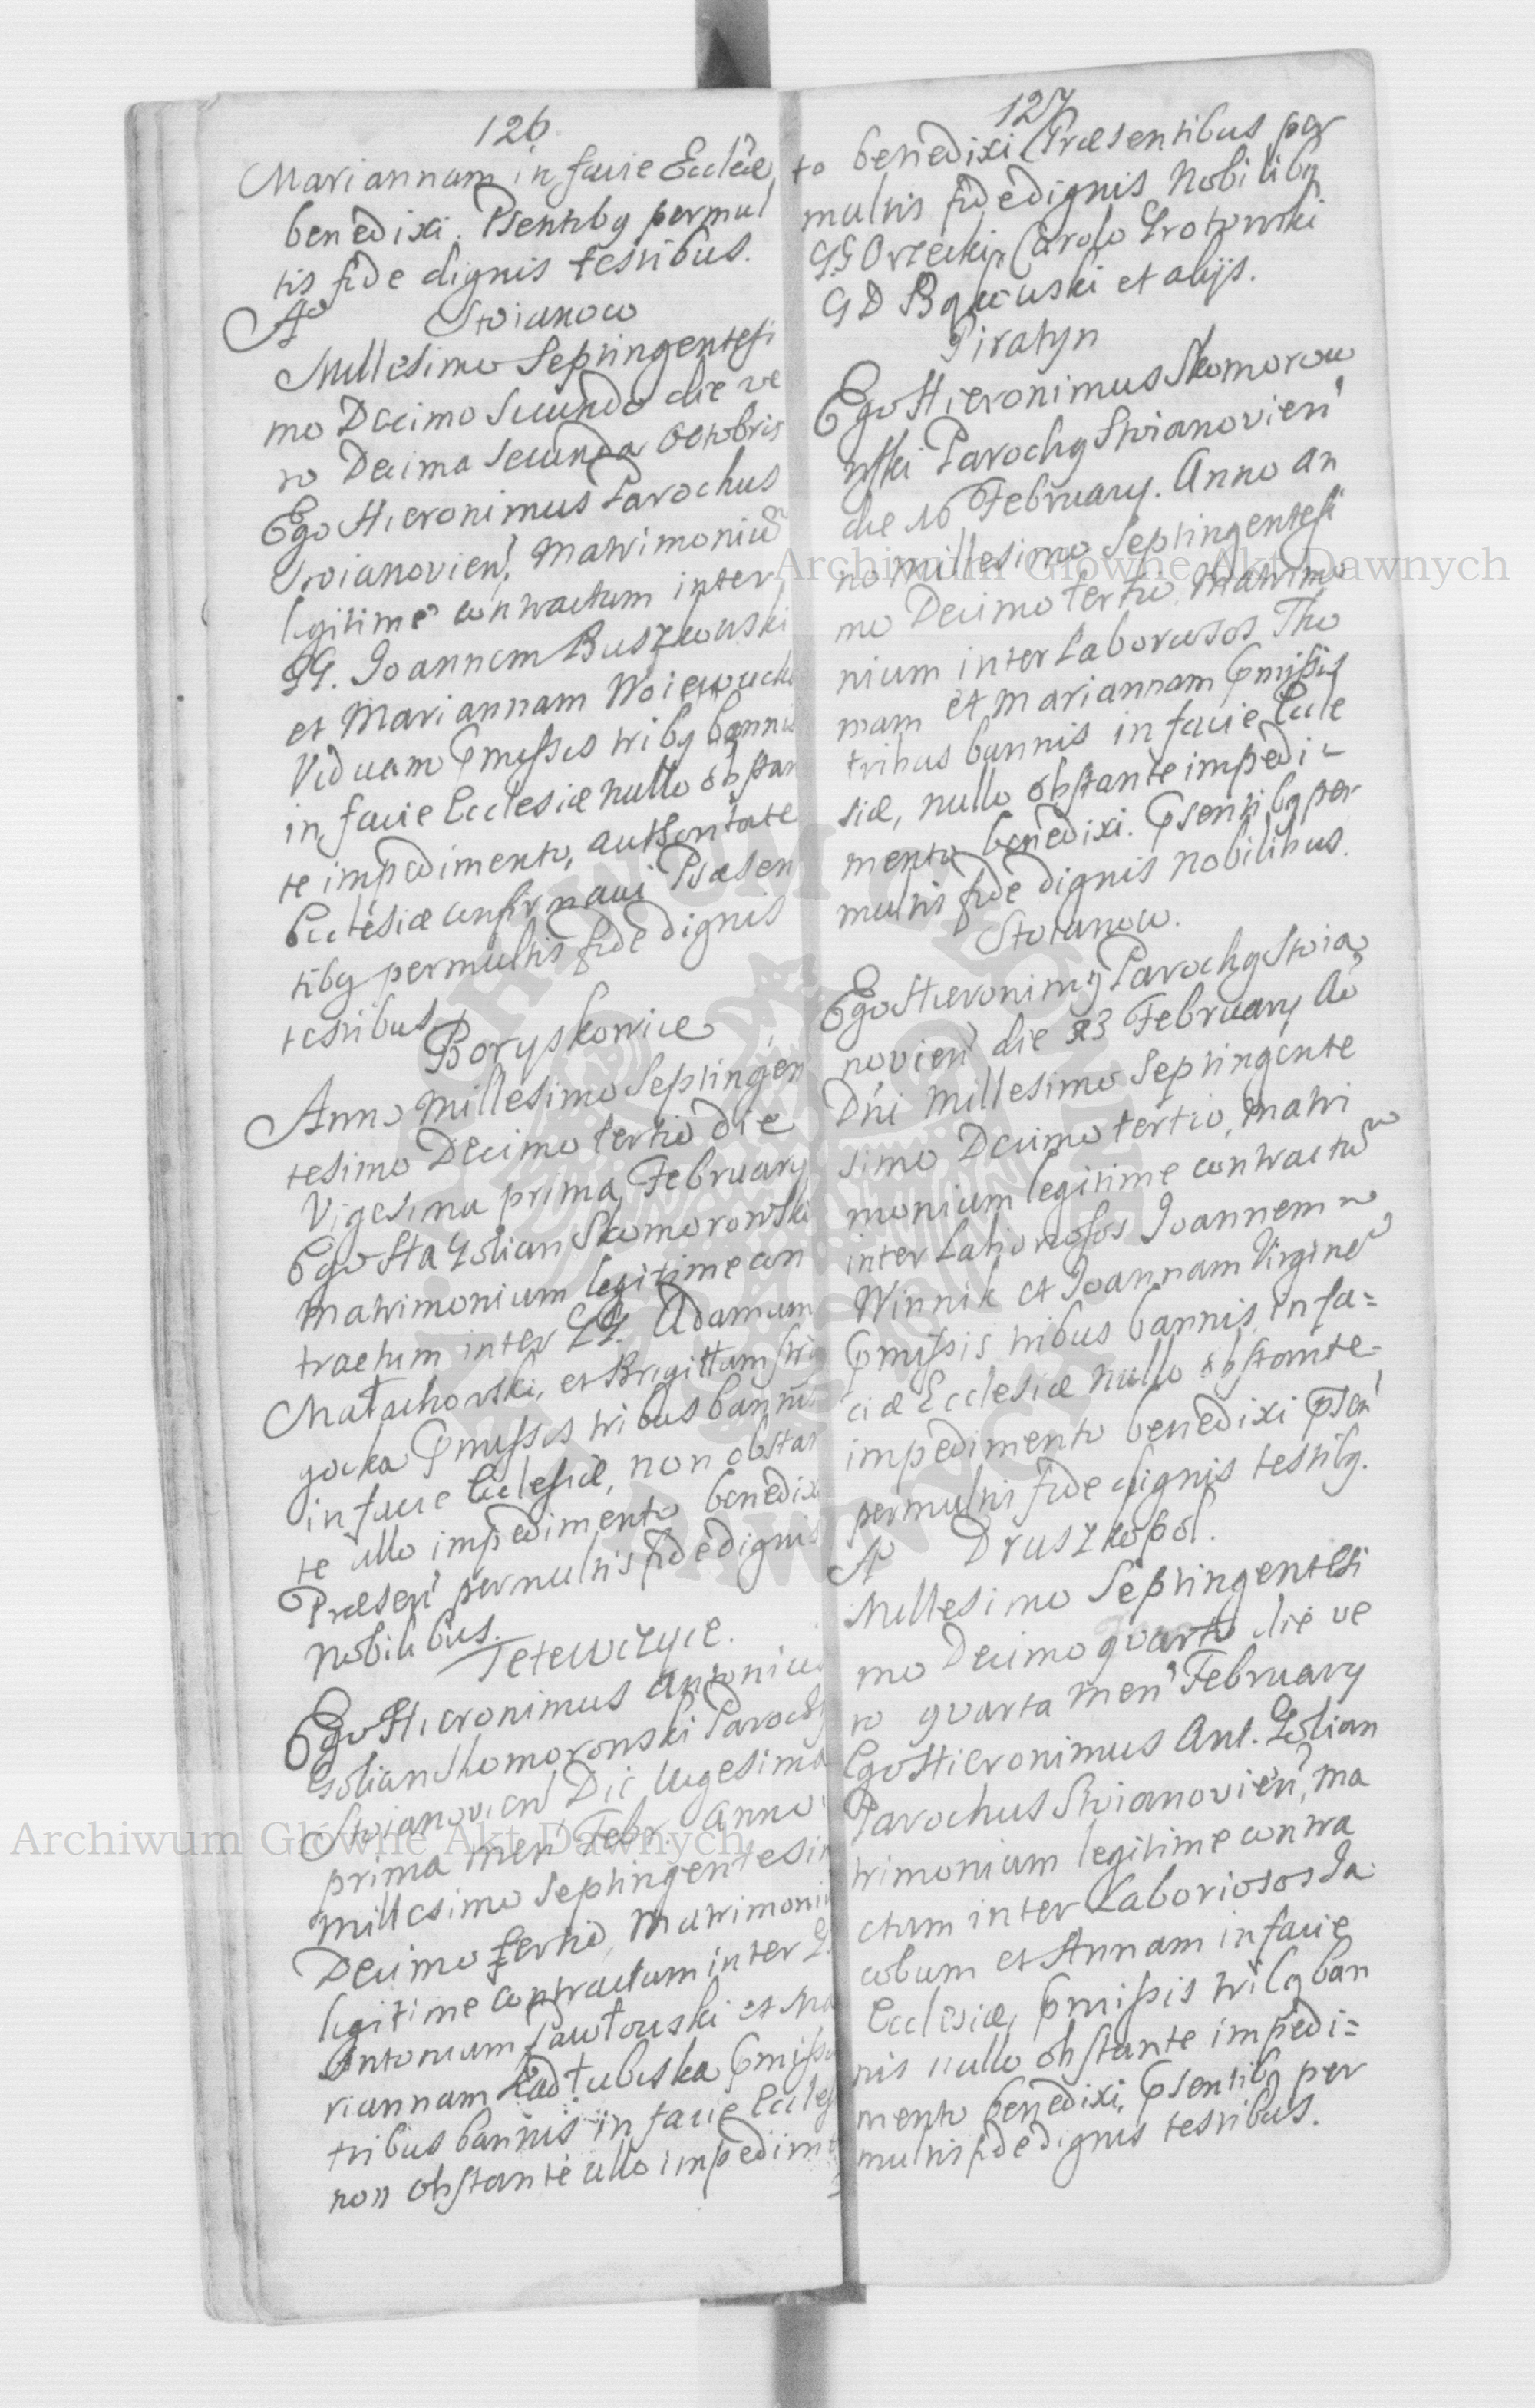 126.
Mariannam in facie Ecclæ
benedixi. Psentibg permul
tis fide dignis testibus.
Ao Stoianow
Millesimo Septingentesi
mo Decimo Secundo die ve
ro Decima Secunda Octobris
Ego Hieronimus Parochus
Stoianovien, Matrimoniu
legitime contractum inter
GG. Joannem Buszkowski
et Mariannam Woiewucki
Viduam Pmissis tribg banni
in facie Ecclesiæ nullo obstan
te impedimento, authoritate
Ecclesiæ confirmavi Præsen
tibg permultis fide dignis
testibus
Boryskowice
Anno Millesimo Septingen
tesimo Decimo tertio die
Vigesima prima February
Ego Ha Golian Skomorowski
Matrimonium legitime con
tractum inter GG. Adamum
Małachowski, et Brigittam
Pmissis tribus bannis
in facie Ecclesiæ, non obstan
te ullo impedimento benedixi
Præsen permultis fide dignis
Nobilibus.
Tetewczyce.
Ego Hieronimus Antonius
Golian Skomorowski Parochg
Stoianovien Die Vigesima
prima men Febr. Anno
Millesimo Septingentesim
Decimo tertio, Matrimoniu
legitime contractum inter G
Antonium Pawłowski et Ma
riannam Kadłubiska Pmissis
tribus bannis in facie Eccles
non obstante ullo impedimen
127
to benedixi Præsentibus per
multis fide dignis Nobilibg
GG Orzecki, Carolo Grotowski
GD et alijs.
Piratyn
Ego Hieronimus Skomorow
wski Parochg Stoianovien
die 16 February. Anno an
no Millesimo Septingentesi
mo Decimo tertio Matrimo
nium inter Laboriosos Tho
mam et Mariannam Pmissis
tribus bannis in facie Eccle
siæ, nullo obstante impedi-
mento benedixi. Psentibg per
multis fide dignis nobilibus.
Stoianow.
Ego Hieronimg Parochg Stoia
novien die 23 February Ao
Dni Millesimo Septingente
simo Decimo tertio, matri
monium legitime contractu
inter Laboriosos Joannem
Winnik et Joannam Virgine
Pmissis tribus bannis in fa=
ciæ Ecclesiæ nullo obstante
impedimento benedixi Psen
permultis fide dignis testibg.
Ao Druszkopol.
Millesimo Septingentesi
mo Decimo quarto die ve
ro quarta men February
Ego Hieronimus Ant. Golian
Parochus Stoianovien, Ma
trimonium legitime contra
ctum inter Laboriosos Ja
cobum et Annam in facie
Ecclesiæ, Pmissis tribg ban
nis nullo obstante impedi=
mento benedixi, Psentibg per
multis fide dignis testibus.
Archiwum Główne Akt Dawnych
Archiwum Główne Akt Dawnych